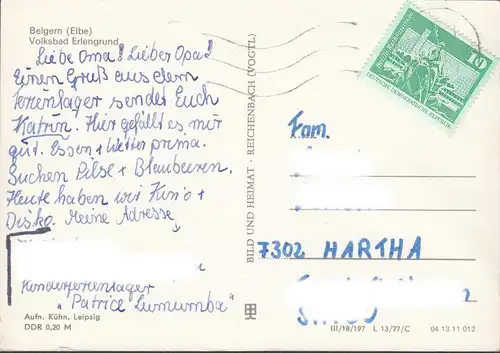 Belgern (Elbe)
Volksbad Erlengrund
Liebe Oma! Lieber Opa!
Einen Gruß aus dem
Ferienlager sendet Euch
Katrin. Hier gefällt es mir
gut. Essen + Wetter prima.
Suchen Pilse + Blaubeeren.
Heute haben wir Kino +
Disko. Meine Adresse
Kinderferienlager
"Patrice Lumumba"
Aufn. Kühn, Leipzig
DDR 0,20 M
BILD UND HEIMAT · REICHENBACH (VOGTL)
10
DEUTSCHE DEMOKRATISCHE REPUBLIK
Fam.
7302 HARTHA
III/18/197 L 13/77/C 04 13 11 012